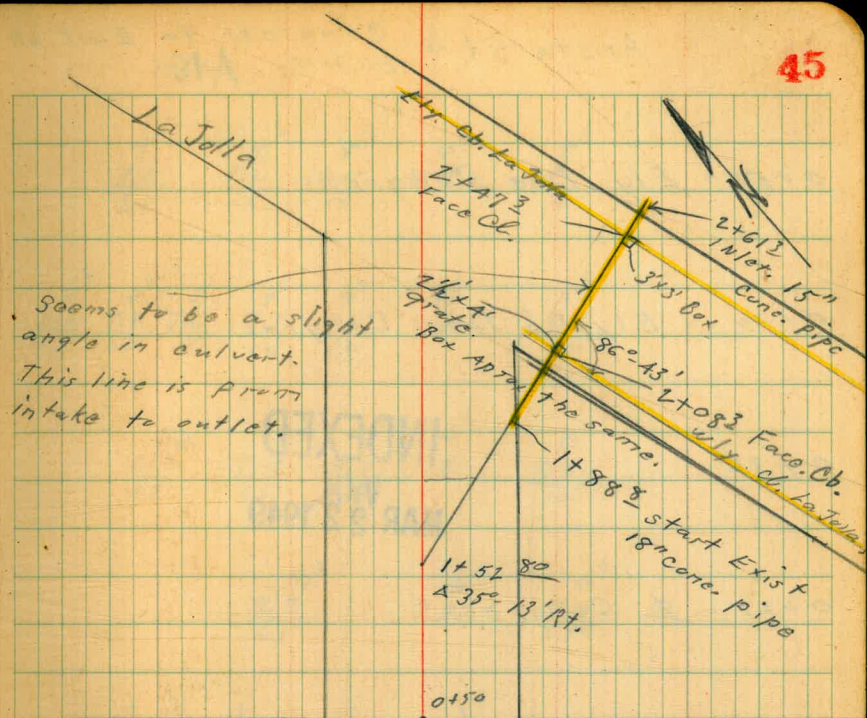 45
La Jolla
Ely. Cb. La Jolla
2+47 3
Face Cb.
2+61 3
Inlet. 15"
conc. pipe
3'x3' Box
2½'x4'
grate.
Box Aprox the same.
86°-43'
2+08 3 Face. Cb.
Wly. Cb. La Jolla
Seems to be a slight
angle in culvert.
This line is from
intake to outlet.
1+88 8 start Exist
18" conc. pipe
1+52 80
Δ 35°-13' Rt.
0+50
INDEXED